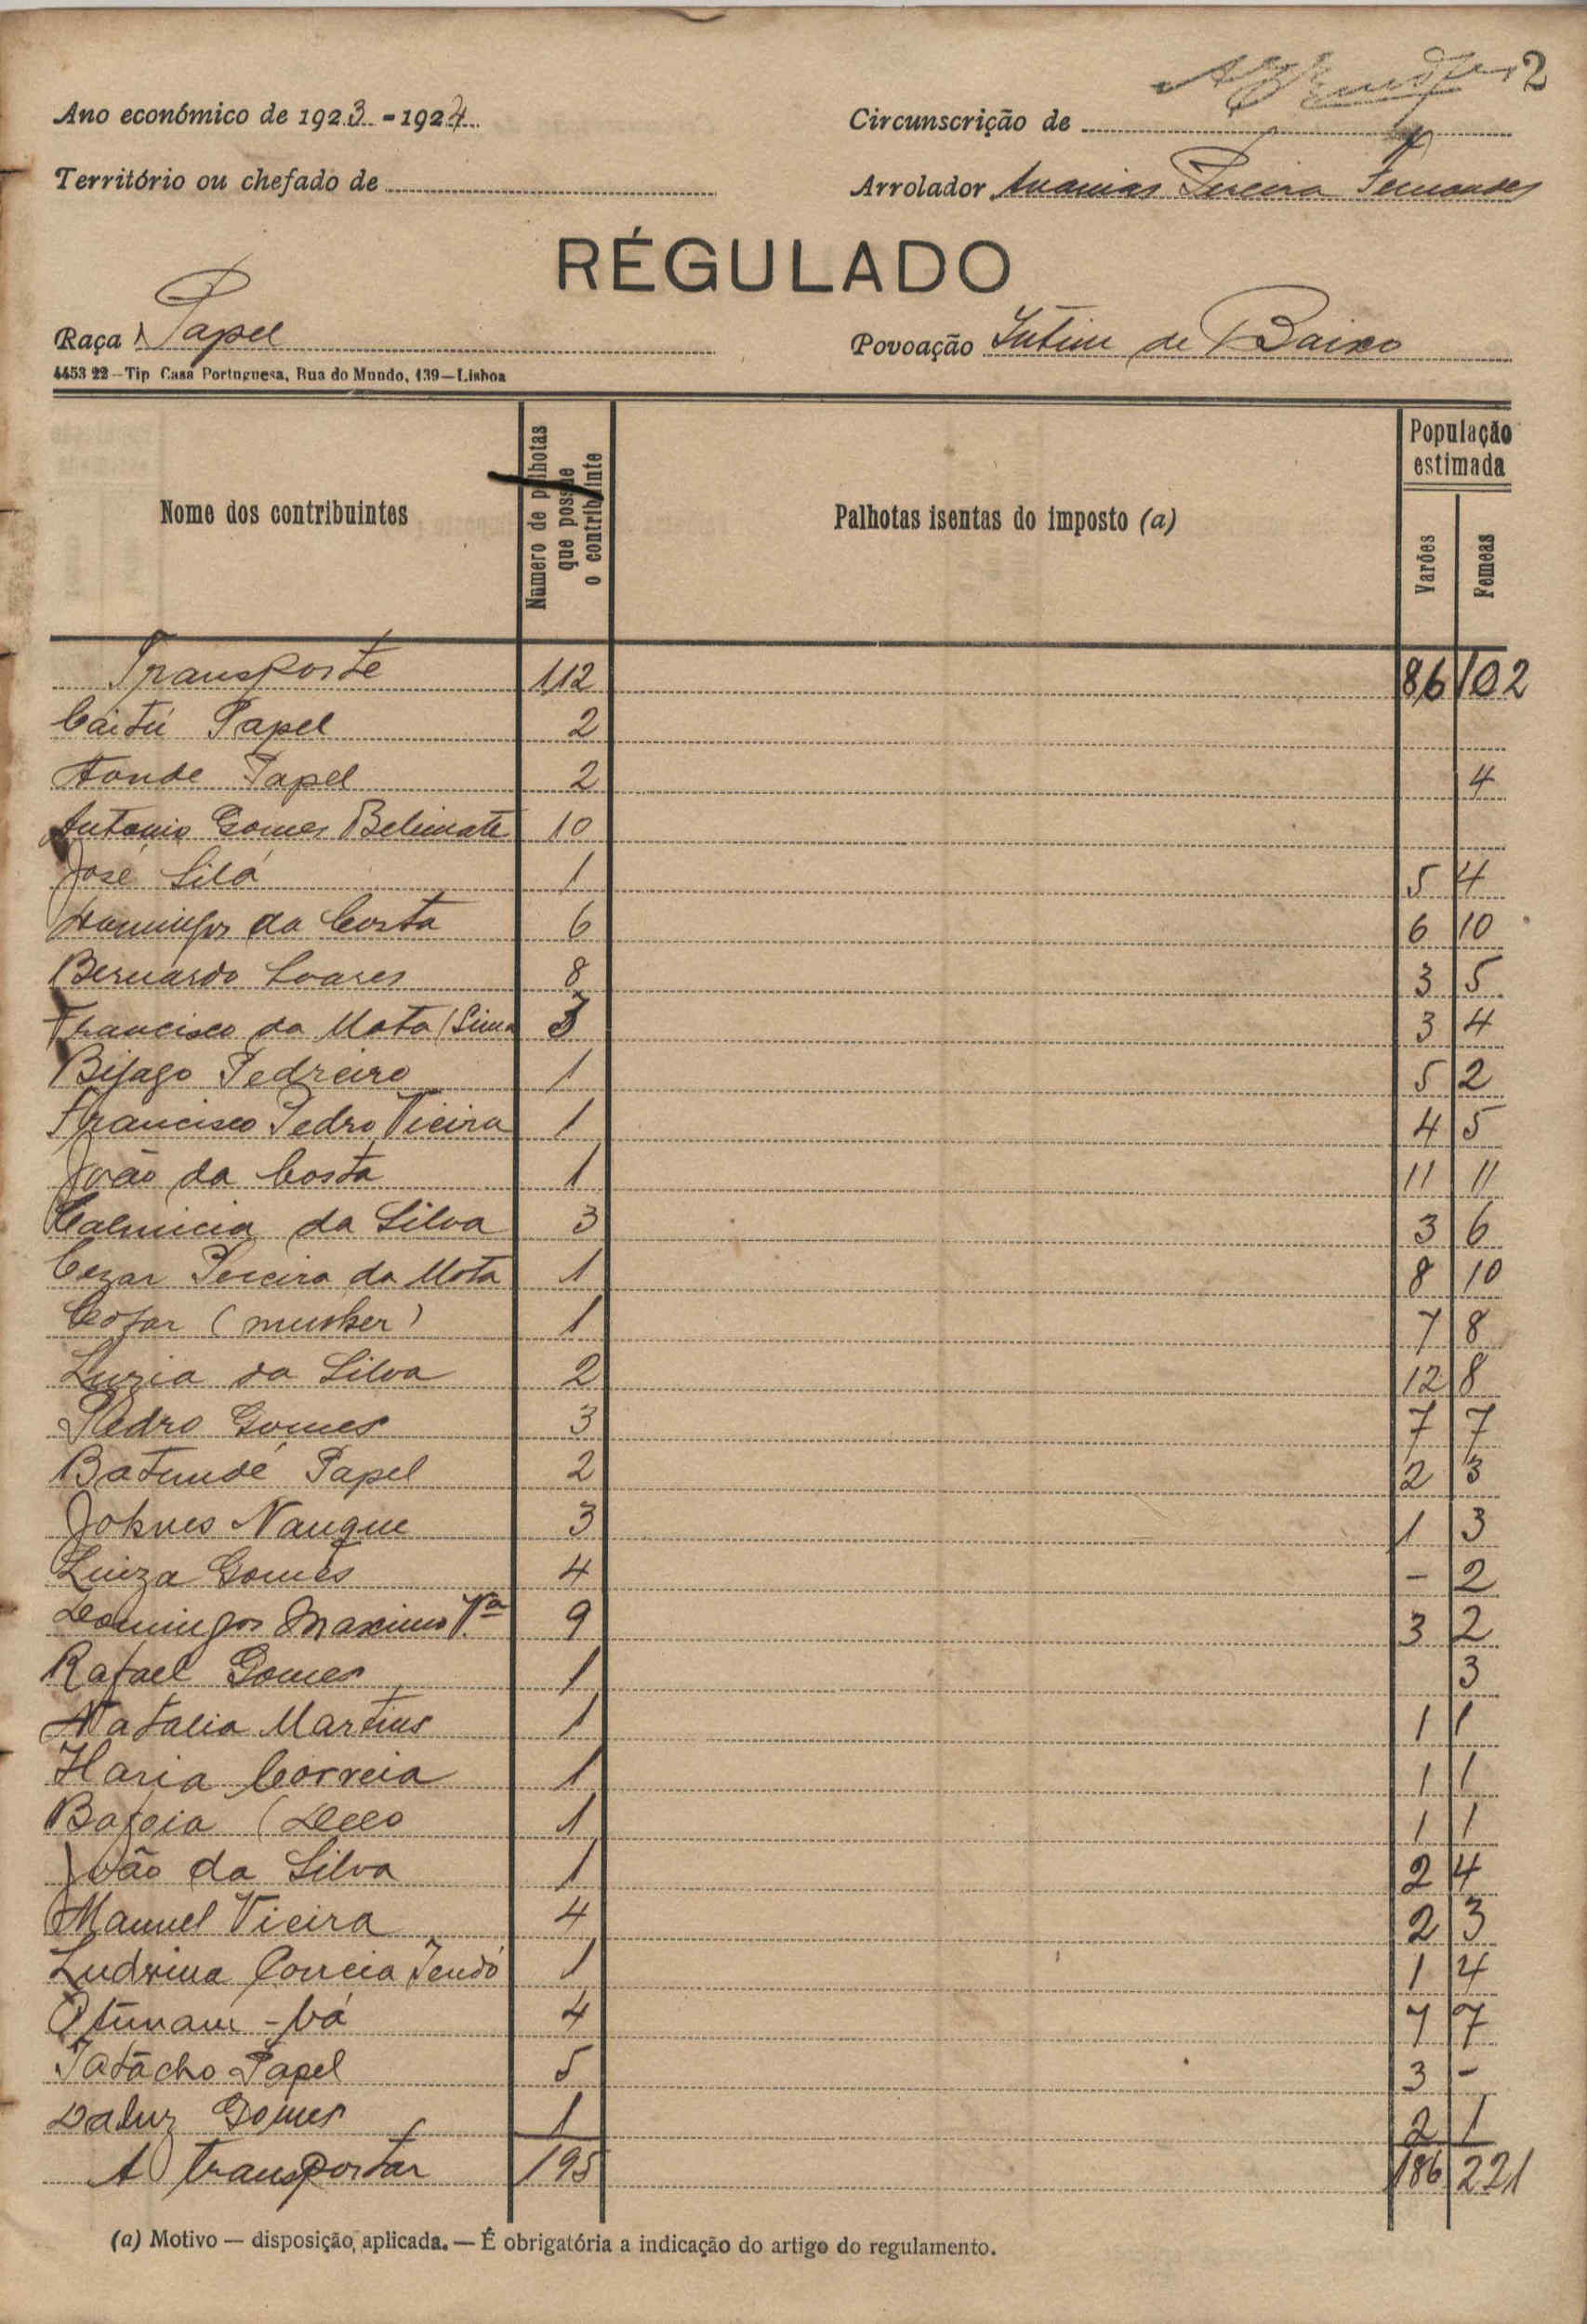 2
Ano económico de 1923 - 1924 Circunscrição de
Território ou chefado de Arrolador Ananias Pereira Fernandes
RÉGULADO
Raça Papel Povoação Intim de Baixo
4453 22 – Tip Casa Portuguesa, Rua do Mundo, 139 – Lisboa
Nome dos contribuintes Número de palhotas que possue o contribuinte Palhotas isentas do imposto (a) População estimada Varões Femeas
Transporte 112 86 102
Caitú Papel 2
Aonde Papel 2 4
Antonio Gomes 10
José Silá 1 5 4
Domingos da Costa 6 6 10
Bernardo Soares 8 3 5
Francisco da Mata (Lima 3 3 4
Bijago Pedreiro 1 5 2
Francisco Pedro Vieira 1 4 5
João da Costa 1 11 11
da Silva 3 3 6
Cezar Pereira da Mota 1 8 10
(mulher) 1 7 8
Luzia da Silva 2 12 8
Pedro Gomes 3 7 7
Batundé Papel 2 2 3
Johnes Nanque 3 1 3
Luiza Gomes 4 – 2
Domingos Maximo Vª 9 3 2
Rafael Gomes 1 3
Natalia Martins 1 1 1
Maria Correia 1 1 1
Bafoia 1 1 1
João da Silva 1 2 4
Manuel Vieira 4 2 3
Ludvina Correia Tendó 1 1 4
4 7 7
Tatácho Papel 5 3 –
Daluz Gomes 1 2 1
A transportar 195 186 221
(a) Motivo — disposição aplicada. — É obrigatória a indicação do artigo do regulamento.